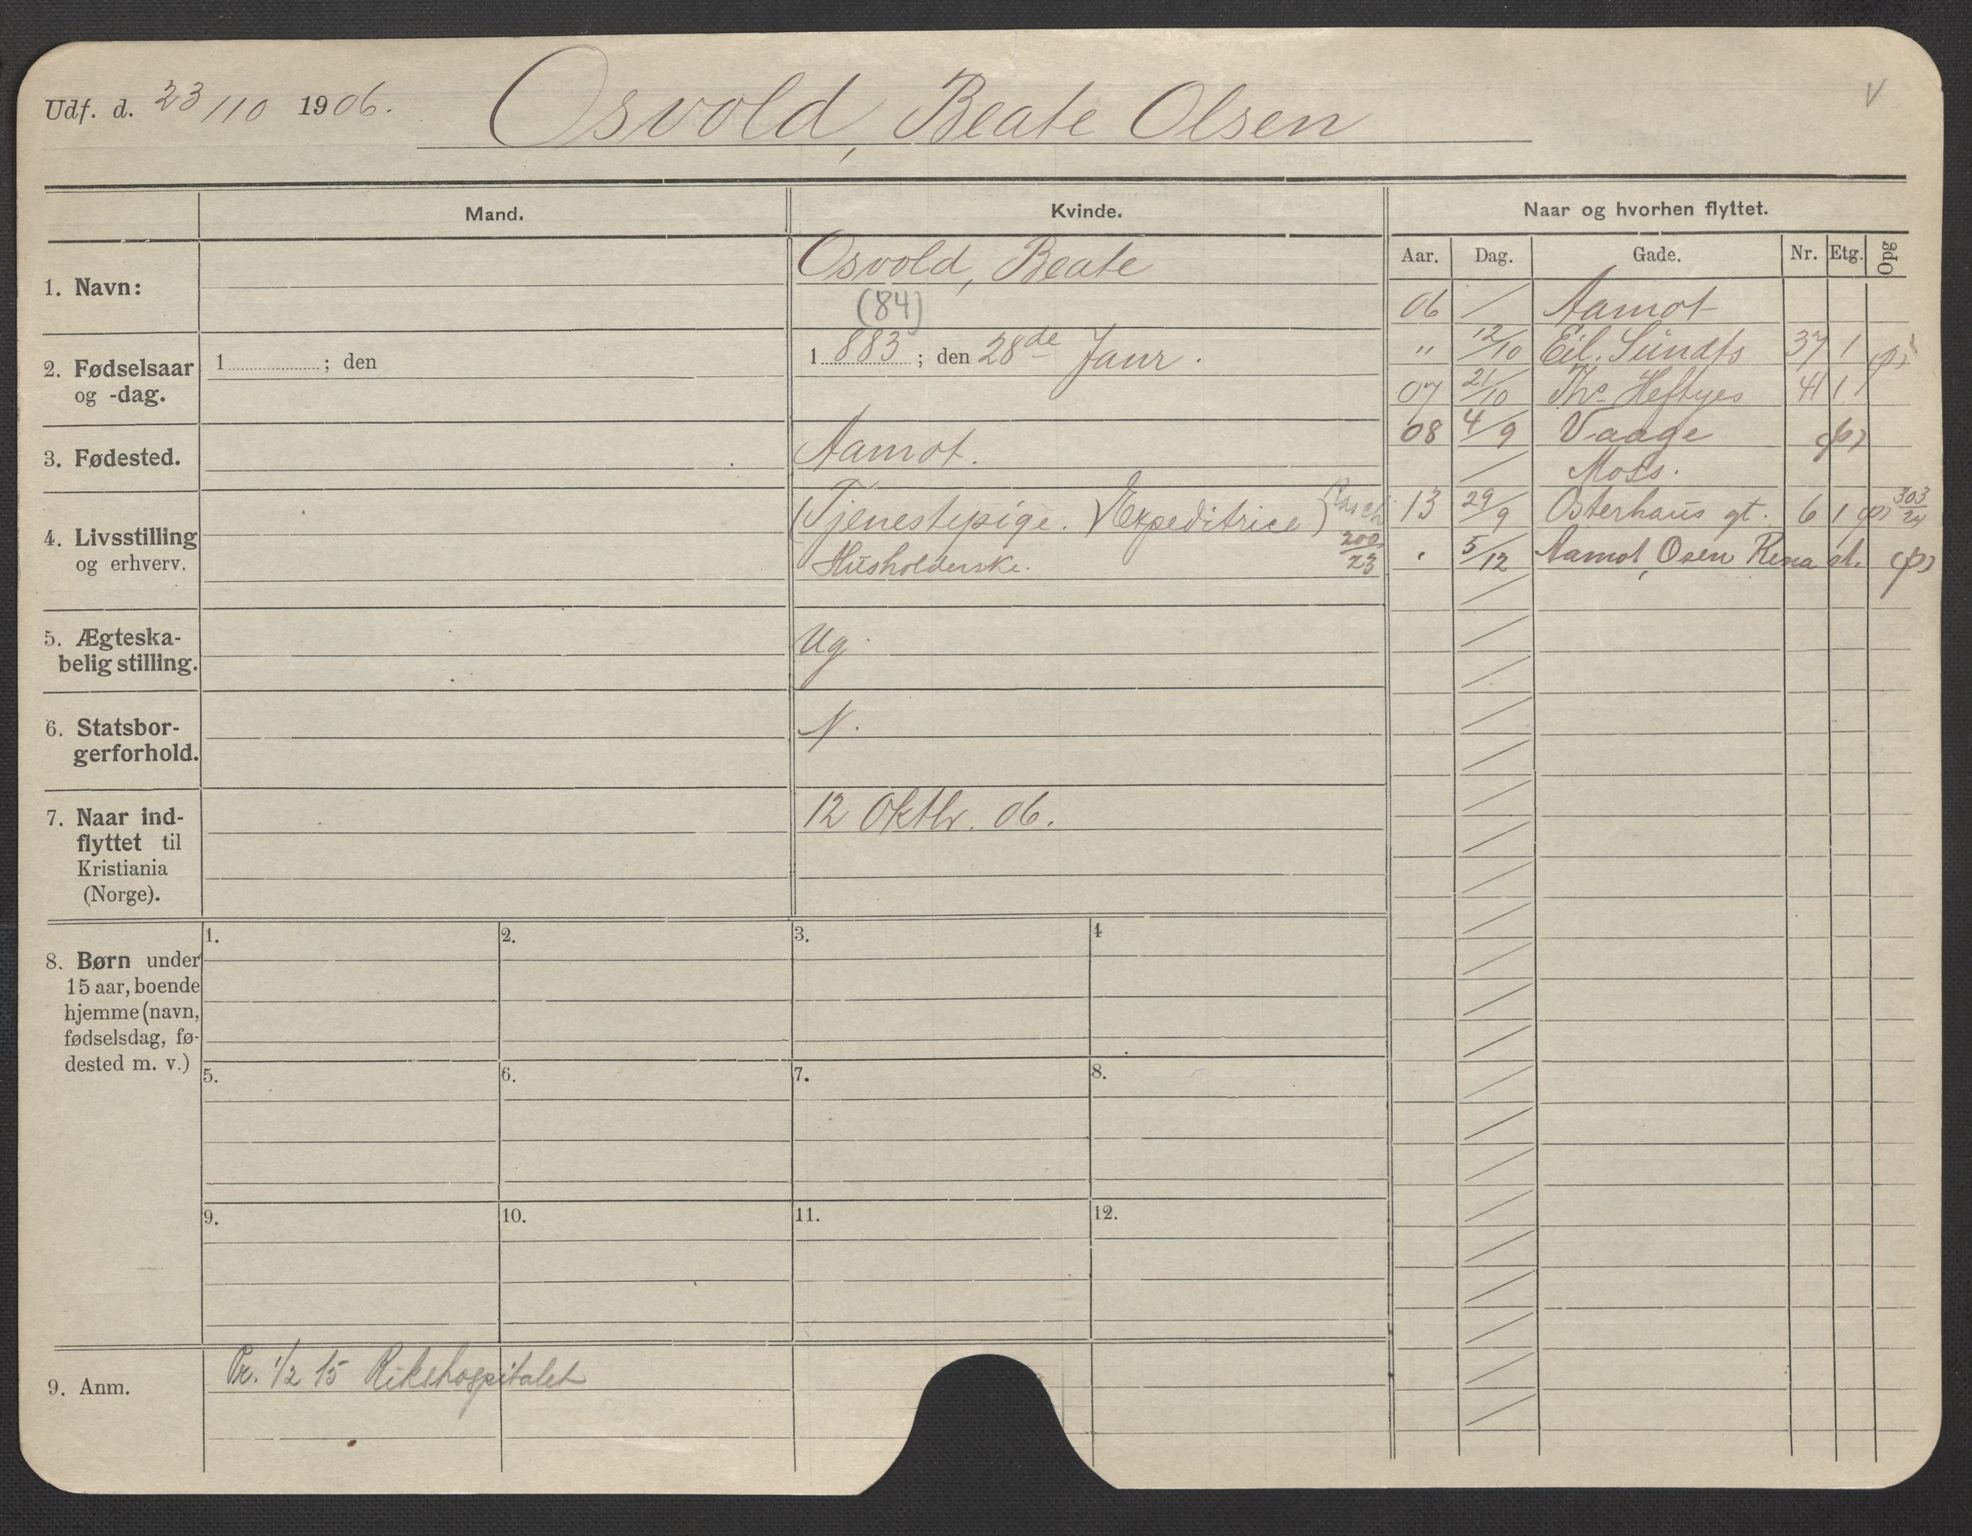 Udf. d. 23/10 1906. Osvold, Beate Olsen V
Mand. Kvinde. Naar og hvorhen flyttet.
Aar. Dag. Gade. Nr. Etg. Opg
1. Navn: Osvold, Beate
(84)
2. Fødselsaar 1 ; den 1 883 ; den 28de Janr.
og -dag.
3. Fødested. Aamot.
4. Livsstilling (Tjenestepige. Expeditrice)
og erhverv. Husholderske. 200/23
5. Ægteska-
belig stilling. Ug.
6. Statsbor-
gerforhold. N.
7. Naar ind- 12 Oktbr. 06.
flyttet til
Kristiania
(Norge).
06 / Aamot
" 12/10 Eil. Sundts 37 1 (p)
07 21/10 Ths Heftyes 41 1
08 4/9 Vaage (p)
/ Moss.
13 29/9 Osterhaus gt. 6 1 (p) 303/24
" 5/12 Aamot, Osen Rena st. (p)
8. Børn under
15 aar, boende
hjemme (navn,
fødselsdag, fø-
dested m. v.)
1. 2. 3. 4
5. 6. 7. 8.
9. 10. 11. 12.
9. Anm. Pr. 1/2 15 Rikshospitalet